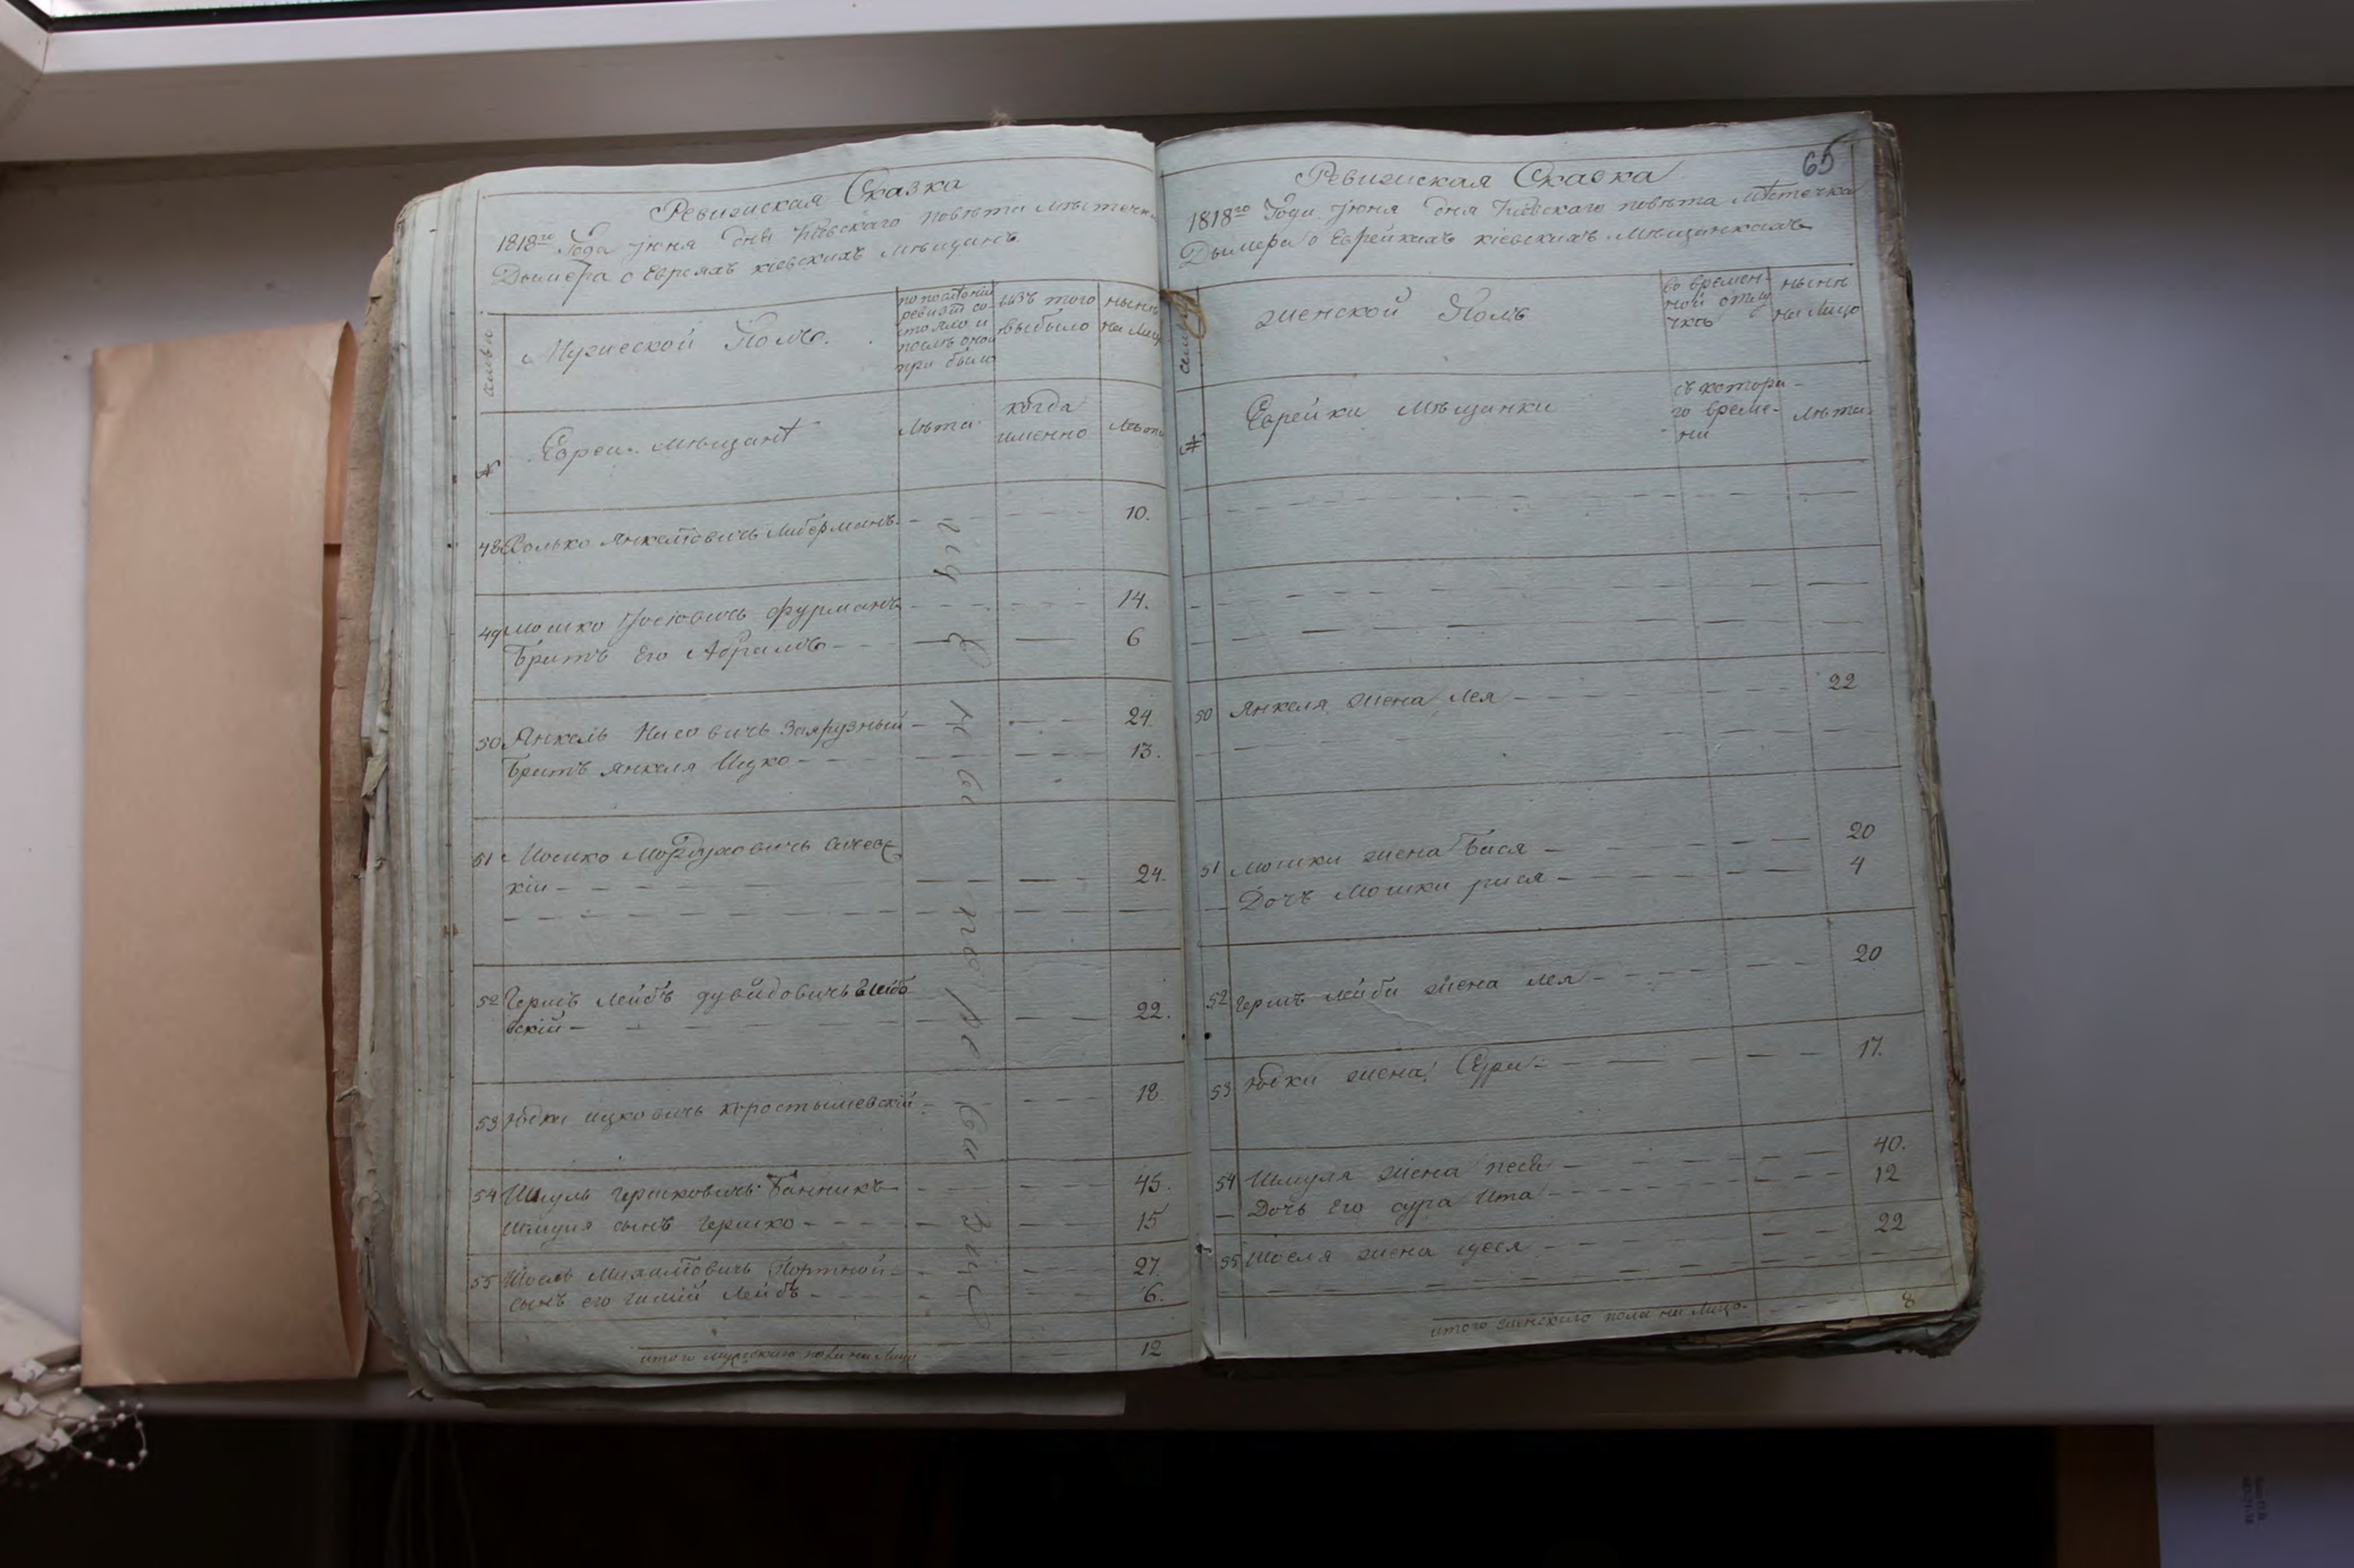 Ревизская Сказка
1818го Года июня дня Киевскаго повета местечка
Дымера о Евреяхъ киевскихъ мещанъ
Мужеской Полъ.
по последней
ревизіи со-
стояло и
после оной
при было
изъ того
выбыло
ныне
на лицо
семьи
№
Евреи мещане
Лета
когда
именно
Лета
48 Волько Янкелiовичъ Либерманъ 10.
49 Мошко Иосiовичъ фурманъ 14.
Братъ Его Абрамъ 6
50 Янкель Иосiовичъ 24.
Братъ Янкеля Ицко 13.
51 Мошко Мордуховичъ
кiи 24.
52 Гершъ Лейбъ дувидовичъ
вскій 22.
53 Юдка ицковичъ коростышевскій 18.
54 Шмуль Гершковичъ Банникъ 45.
Шмуля сынъ Гершко 15
55 Шоель Портной 27
сынъ его Лейбъ 6.
итого мужескаго пола на Лицо 12
65
Ревизская Сказка
1818го Года июня дня Киевскаго повета местечка
Дымера о Еврейкахъ кіевскихъ мещанкахъ
семьи
№
женской Полъ
во времен-
ной отлу
чке
ныне
на Лицо
Еврейки мещанки
съ котора-
го време-
ни
лета
50 Янкеля жена Лея 22
51 Мошки жена Бася 20
Дочъ Мошки рися 4
52 Гершъ лейби жена лея 20
53 Юдки жена Сура 17.
54 Шмуля жена песя 40.
Дочь Его сура Ита 12
55 Шоеля жена 22
итого женскаго пола на Лицо 8